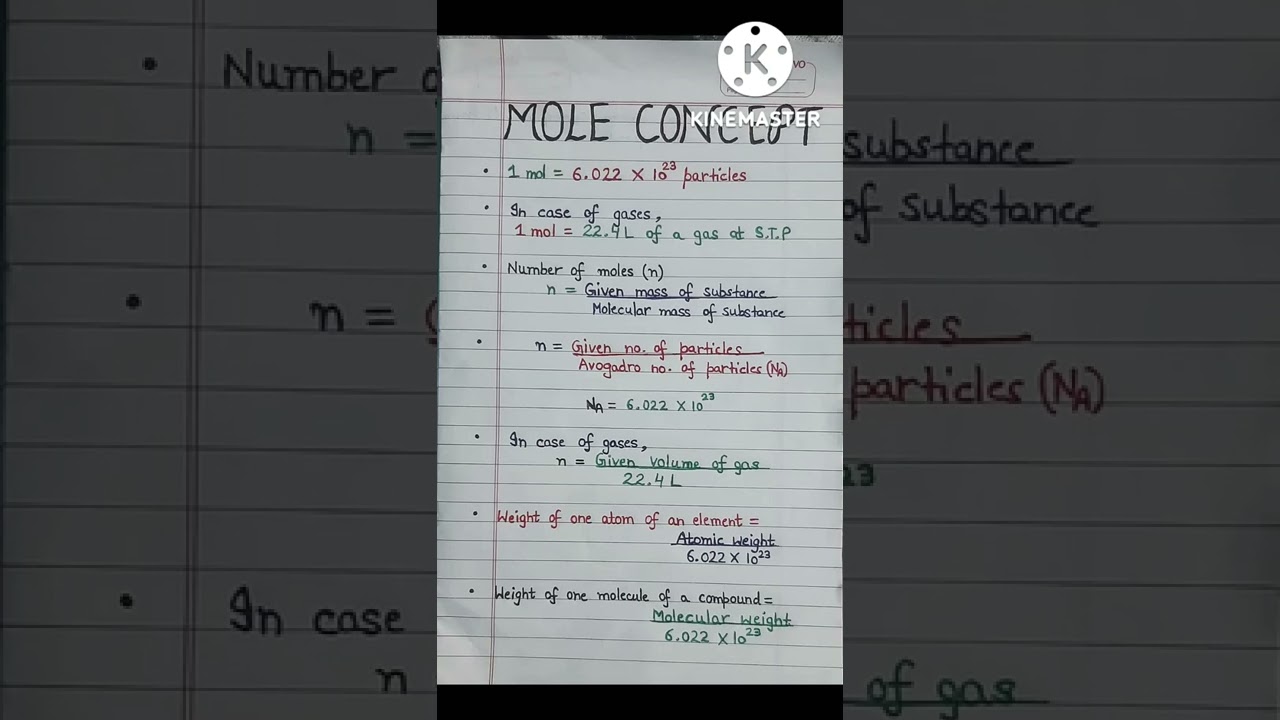 MOLE CONCEPT
KINEMASTER
• 1 mol = 6.022 × 10²³ particles
• In case of gases,
1 mol = 22.4 L of a gas at S.T.P
• Number of moles (n)
n = Given mass of substance
Molecular mass of substance
• n = Given no. of particles
Avogadro no. of particles (NA)
NA = 6.022 × 10²³
• In case of gases,
n = Given volume of gas
22.4 L
• Weight of one atom of an element =
Atomic weight
6.022 × 10²³
• Weight of one molecule of a compound =
Molecular weight
6.022 × 10²³